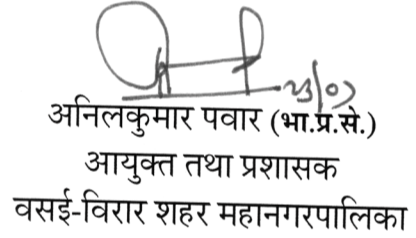 23/07
अनिलकुमार पवार (भा.प्र.से.)
आयुक्त तथा प्रशासक
वसई-विरार शहर महानगरपालिका